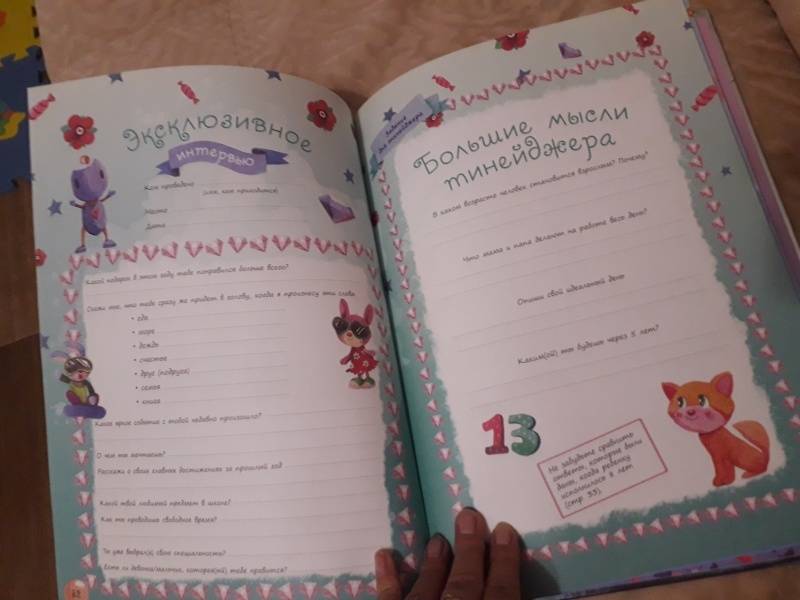 Эксклюзивное
интервью
Кем проведено
(имя, кем приходится)
Место
Дата
Какой подарок в этом году тебе понравился больше всего?
Скажи мне, что тебе сразу же придет в голову, когда я произнесу эти слова
• еда
• море
• дождь
• счастье
• друг (подруга)
• семья
• книга
Какое яркое событие с тобой недавно произошло?
О чем ты мечтаешь?
Расскажи о своих главных достижениях за прошлый год
Какой твой любимый предмет в школе?
Как ты проводишь свободное время?
Ты уже выбрал(а) свою специальность?
Есть ли девочка/мальчик, которая(ый) тебе нравится?
52
Задание
для тинейджера
Большие мысли
тинейджера
В каком возрасте человек становится взрослым? Почему?
Что мама и папа делают на работе весь день?
Опиши свой идеальный день
Каким(ой) ты будешь через 5 лет?
13
Не забудьте сравнить
ответы, которые были
даны, когда ребенку
исполнилось 8 лет
(стр. 33).